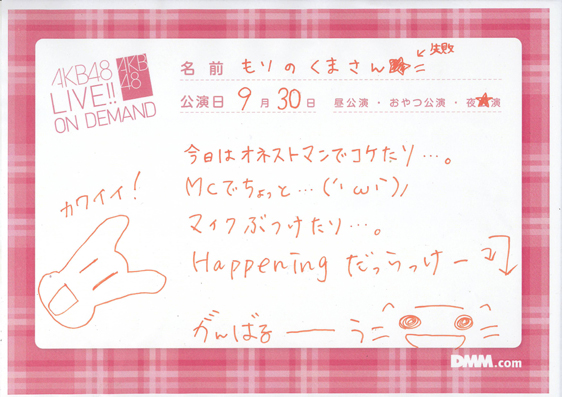 AKB48
LIVE!!
ON DEMAND
AKB
48
名前 もりのくまさん
失敗
公演日 9月30日 昼公演・おやつ公演・夜★演
今日はオネストマンでコケたり…。
MCでちょっと…(´･ω･`)ﾉ
マイクぶつけたり…。
Happeningだらっけー
がんばるーーう
カワイイ!
DMM.com